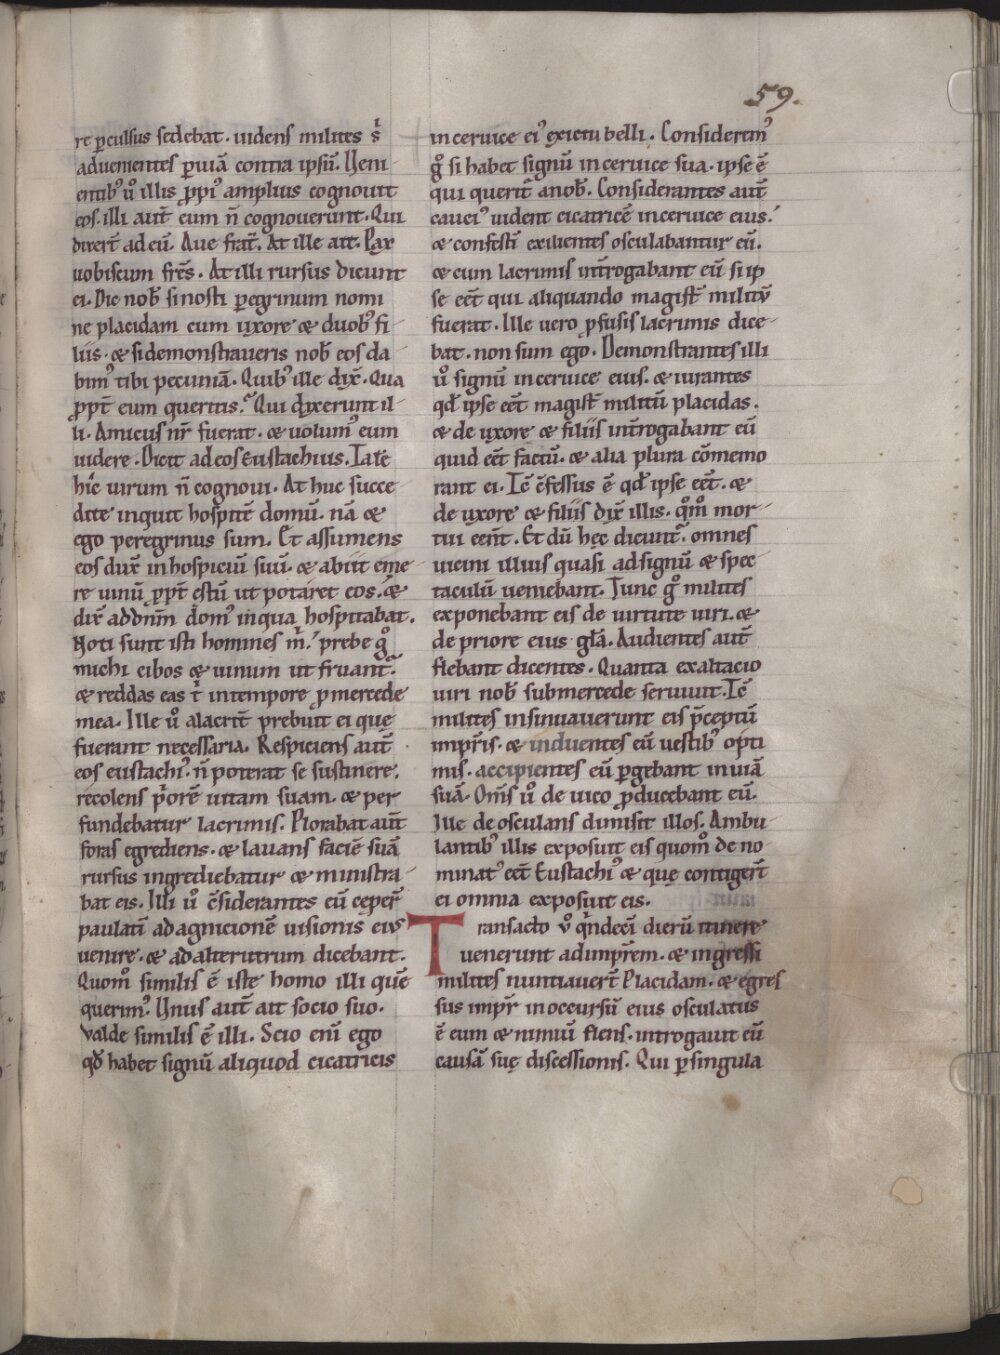 59.
re ꝑculsus sedebat. uidens milites s᷒
aduenientes ꝑ uiã contra ipsũ. Ueni
entibꝰ ũ illis ꝓpiꝰ amplius cognouit
eos. illi aut̃ eum ñ cognouerunt. Qui
dixer̃t ad eũ. Aue frat̃. At ille ait. Pax
uobiscum fr̃s. At illi rursus dicunt
ei. Dic nob̃ si nosti ꝑegrinum nomi
ne placidam cum uxore ⁊ duobꝰ fi
liis. ⁊ si demonstraueris nob̃ eos da
bimꝰ tibi pecuniã. Quibꝰ ille dix̃. Qua
ꝓpt̃ eum queritis? Qui dixerunt il
li. Amicus nr̃ fuerat. ⁊ uolumꝰ eum
uidere. Dicit ad eos Eustachius. Talẽ
hic uirum ñ cognoui. At huc succe
dite inquit hospitẽ domũ. nã ⁊
ego peregrinus sum. Et assumens
eos dux̃ in hospiciũ suũ. ⁊ abiit eme
re uinũ ꝓpt̃ estũ ut potaret eos. ⁊
dix̃ ad dñm domꝰ in qua hospitabat.
Noti sunt isti homines m̃. prebe gͦ
michi cibos ⁊ uinum ut fruant̃.
⁊ reddas eas t̃ in tempore ꝓ mercede
mea. Ille ũ alacrit̃ prebuit ei quę
fuerant necessaria. Respiciens aut̃
eos eustachiꝰ. ñ poterat se sustinere.
recolens p̃orẽ uitam suam. ⁊ per
fundebatur lacrimis. Plorabat aut̃
foras egrediens. ⁊ lauans faciẽ suã
rursus ingrediebatur ⁊ ministra
bat eis. Illi ũ c̃siderantes eũ ceper̃
paulati ad agnicionẽ uisionis eius
uenire. ⁊ ad alterutrum dicebant.
Quom̃ similis ẽ iste homo illi quẽ
querimꝰ. Unus aut̃ ait socio suo.
Valde similis ẽ illi. Scio eni ego
qd̃ habet signũ aliquod cicatricis
in ceruice eiꝰ ex ictu belli. Consideremꝰ
gͦ si habet signũ in ceruice sua. ipse ẽ
qui querit̃ a nob̃. Considerantes aut̃
cauciꝰ uident cicatricẽ in ceruice eius.
⁊ confesti exilientes osculabantur eũ.
⁊ cum lacrimis int̃rogabant eũ si ip
se eẽt qui aliquando magist̃ militũ
fuerat. Ille uero ꝓfusis lacrimis dice
bat. non sum ego. Demonstrantes illi
ũ signũ in ceruice eius. ⁊ iurantes
qd̃ ipse eẽt magist̃ militũ placidas.
⁊ de uxore ⁊ filiis int̃rogabant eũ
quid eẽt factũ. ⁊ alia plura cõmemo
rant ei. Tc̃ c̃fessus ẽ qd̃ ipse eẽt. ⁊
de uxore ⁊ filiis dix̃ illis. qm̃ mor
tui eent. Et dũ hęc dicunt̃. omnes
uicini illius quasi ad signũ ⁊ spec
taculũ ueniebant. Tunc gͦ milites
exponebant eis de uirtute uiri. ⁊
de priore eius gl̃a. Audientes aut̃
flebant dicentes. Quanta exaltacio
uiri nob̃ sub mercede seruiuit. Tc̃
milites insinuauerunt eis p̃ceptũ
impr̃is. ⁊ induentes eũ uestibꝰ opti
mis. accipientes eũ ꝑgebant in uiã
suã. Om̃s ũ de uico ꝓducebant eũ.
Ille deosculans dimisit illos. Ambu
lantibꝰ illis exposuit eis quom̃ de no
minatꝰ eẽt Eustachiꝰ ⁊ quę contiger̃t
ei omnia exposuit eis.
Transacto ṽ qͥndeci dierũ itinere
uenerunt ad impr̃em. ⁊ ingressi
milites nuntiauer̃t Placidam. ⁊ egres
sus impr̃ in occursũ eius osculatus
ẽ eum ⁊ nimiũ flens. introgauit eũ
causã suę discessionis. Qui ꝑ singula